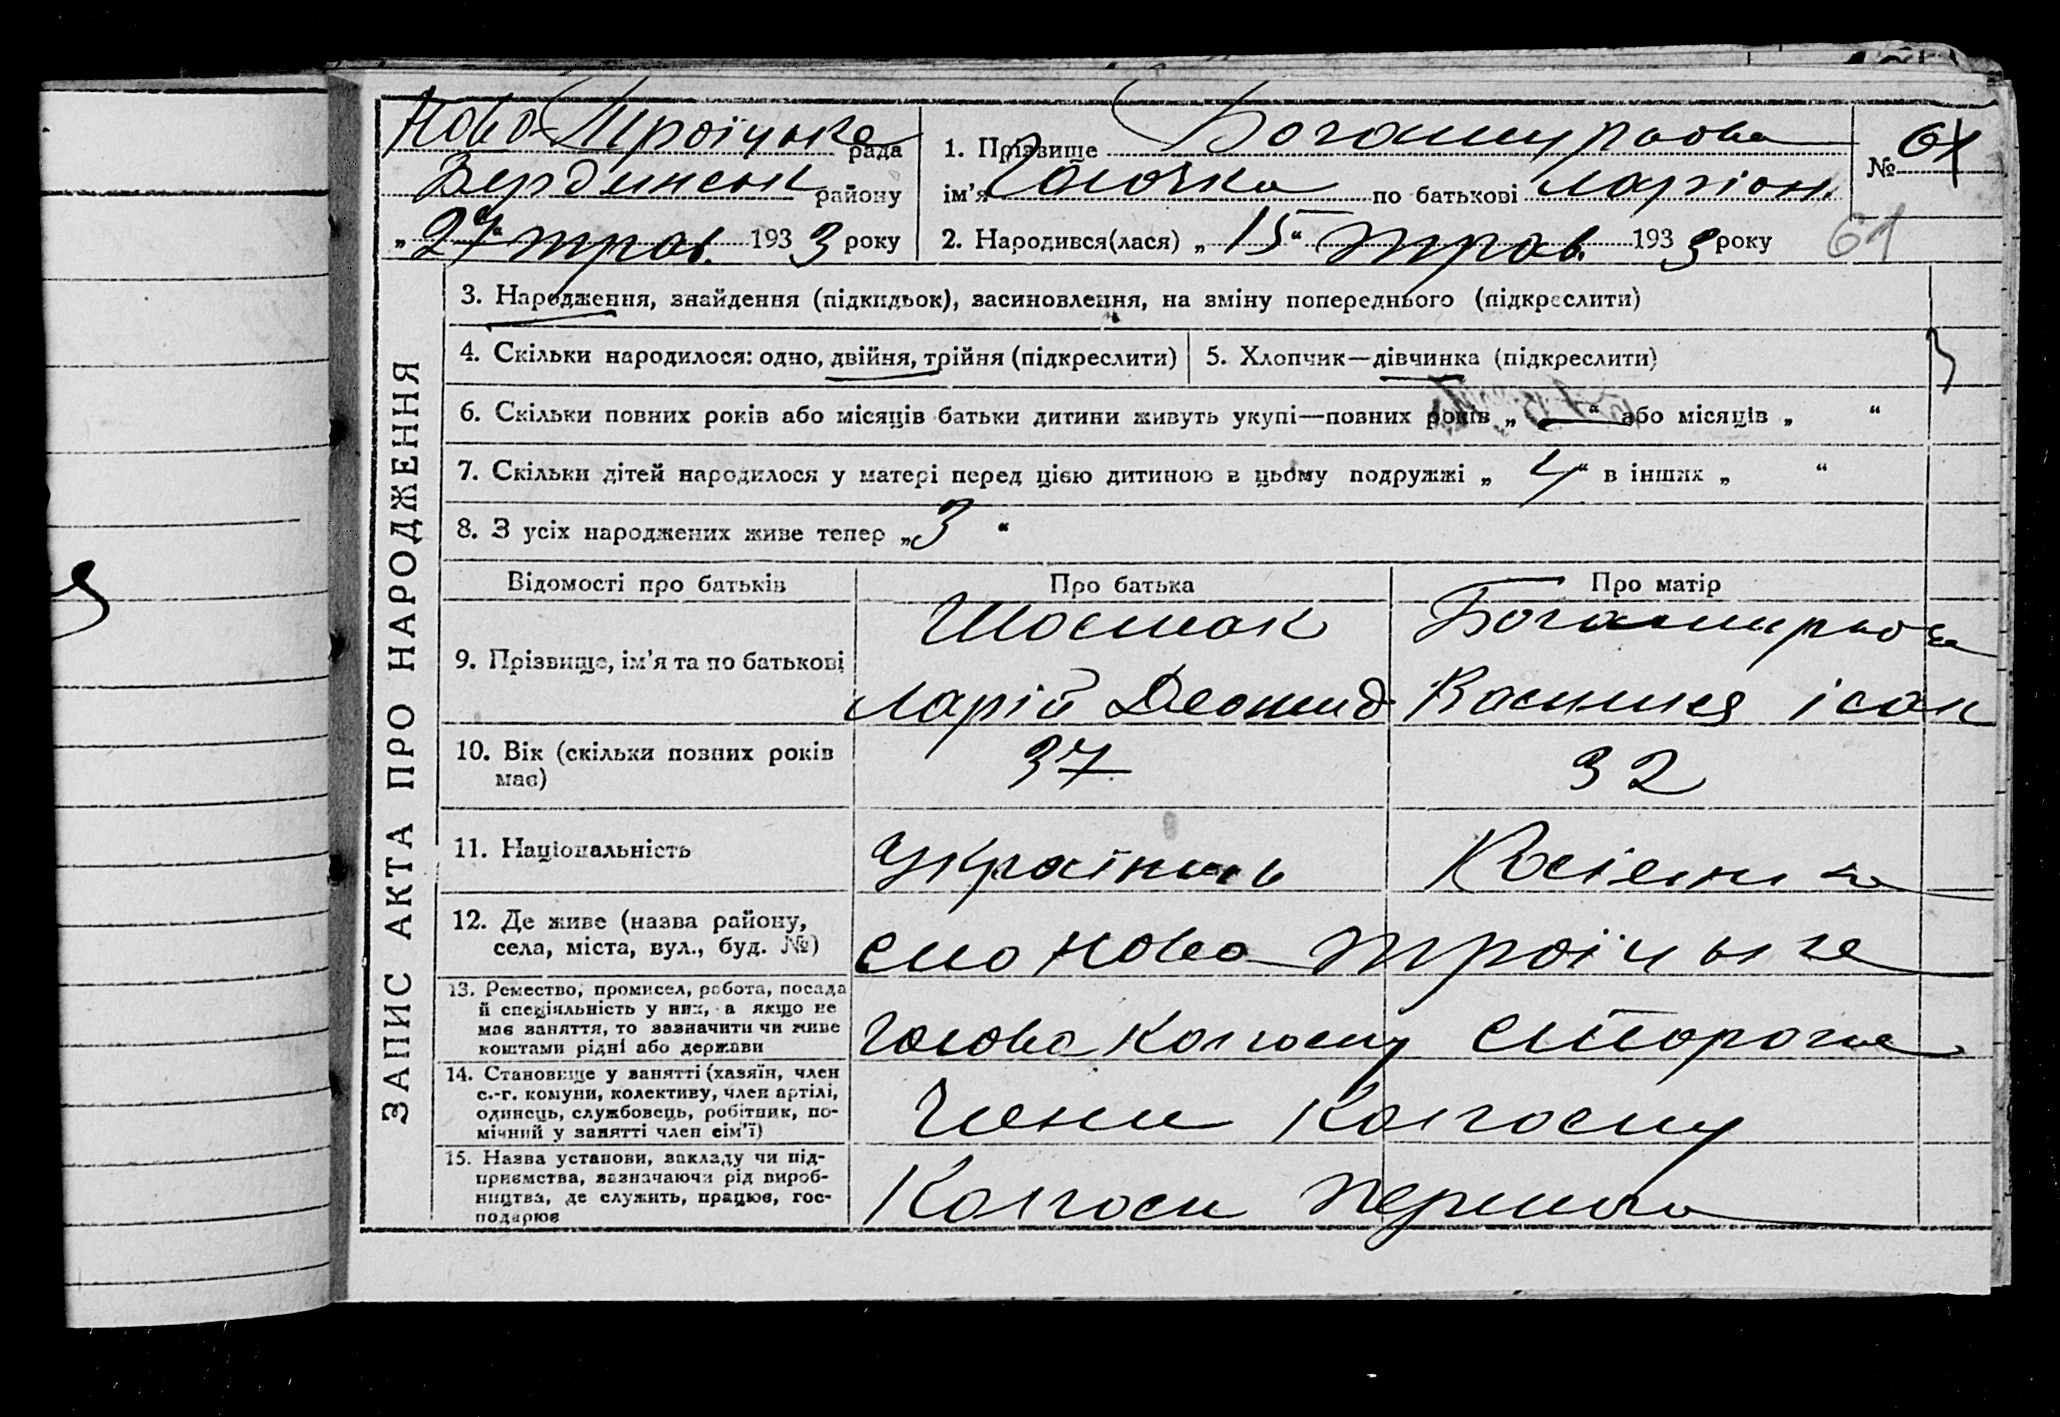 Ново-Троїцька рада
Бердянськ району
„27“ трав. 1933 року
1. Прізвище Богатирьова
ім'я Галочка по батькові Ларіон.
2. Народився(лася) „15“ трав. 1933 року
№ 61
61
ЗАПИС АКТА ПРО НАРОДЖЕННЯ
3. Народження, знайдення (підкидьок), засиновлення, на зміну попереднього (підкреслити)
4. Скільки народилося: одно, двійня, трійня (підкреслити)
5. Хлопчик—дівчинка (підкреслити)
6. Скільки повних років або місяців батьки дитини живуть укупі—повних років „ — “ або місяців „ “
7. Скільки дітей народилося у матері перед цією дитиною в цьому подружжі „ 4 “ в інших „ “
8. З усіх народжених живе тепер „ 3 “
Відомості про батьків
Про батька
Про матір
9. Прізвище, ім'я та по батькові
Шостак
Ларій
Богатирьова
Василися Ісак
10. Вік (скільки повних років
має)
37
32
11. Національність
Українець
Росіянка
12. Де живе (назва району,
села, міста, вул., буд. №)
село Ново Троїцьке
13. Ремество, промисел, робота, посада
й спеціяльність у них, а якщо не
має заняття, то зазначити чи живе
коштами рідні або держави
голова колгоспу
сторожка
14. Становище у занятті (хазяїн, член
с.-г. комуни, колективу, член артілі,
одинець, службовець, робітник, по-
мічний у занятті член сім'ї)
Члени колгоспу
15. Назва установи, закладу чи під-
приємства, зазначаючи рід вироб-
ництва, де служить, працює, гос-
подарює
Колгосп